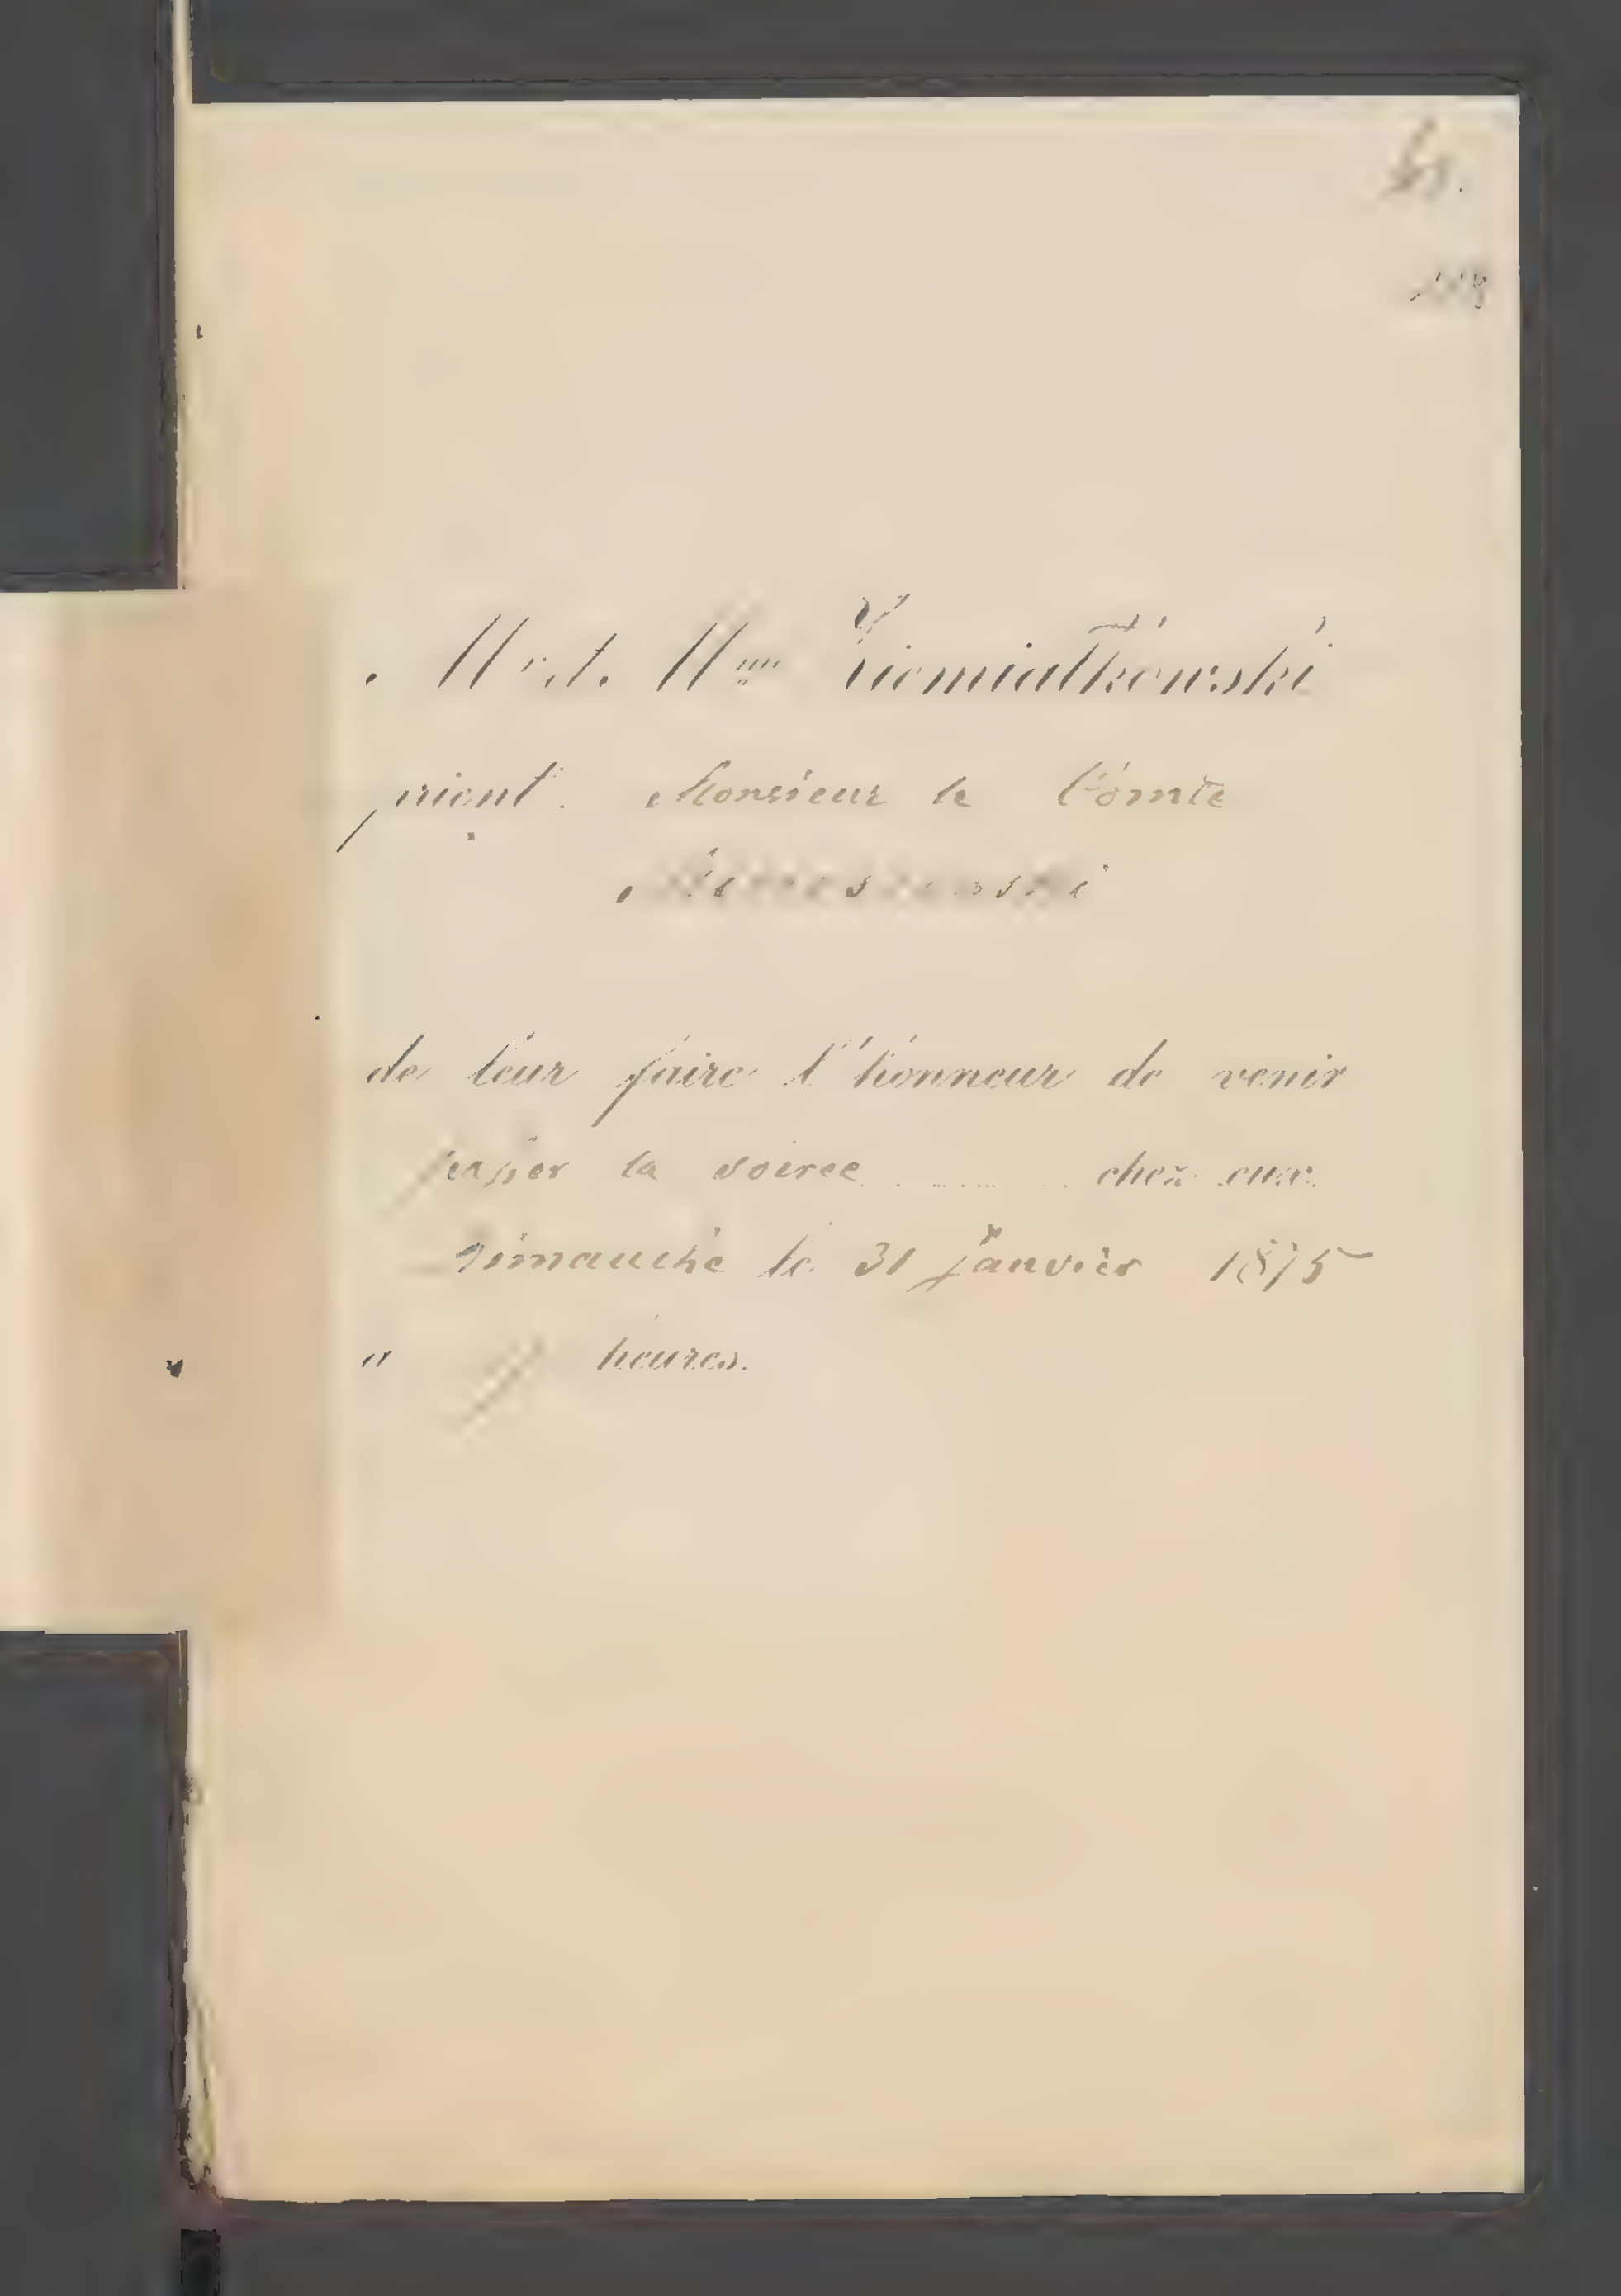 Mr et Mme Ziemiałkowski
prient Monsieur le Comte
de leur faire l'honneur de venir
passer la soirée chez eux
Dimanche le 31 Janvier 1875
à heures.